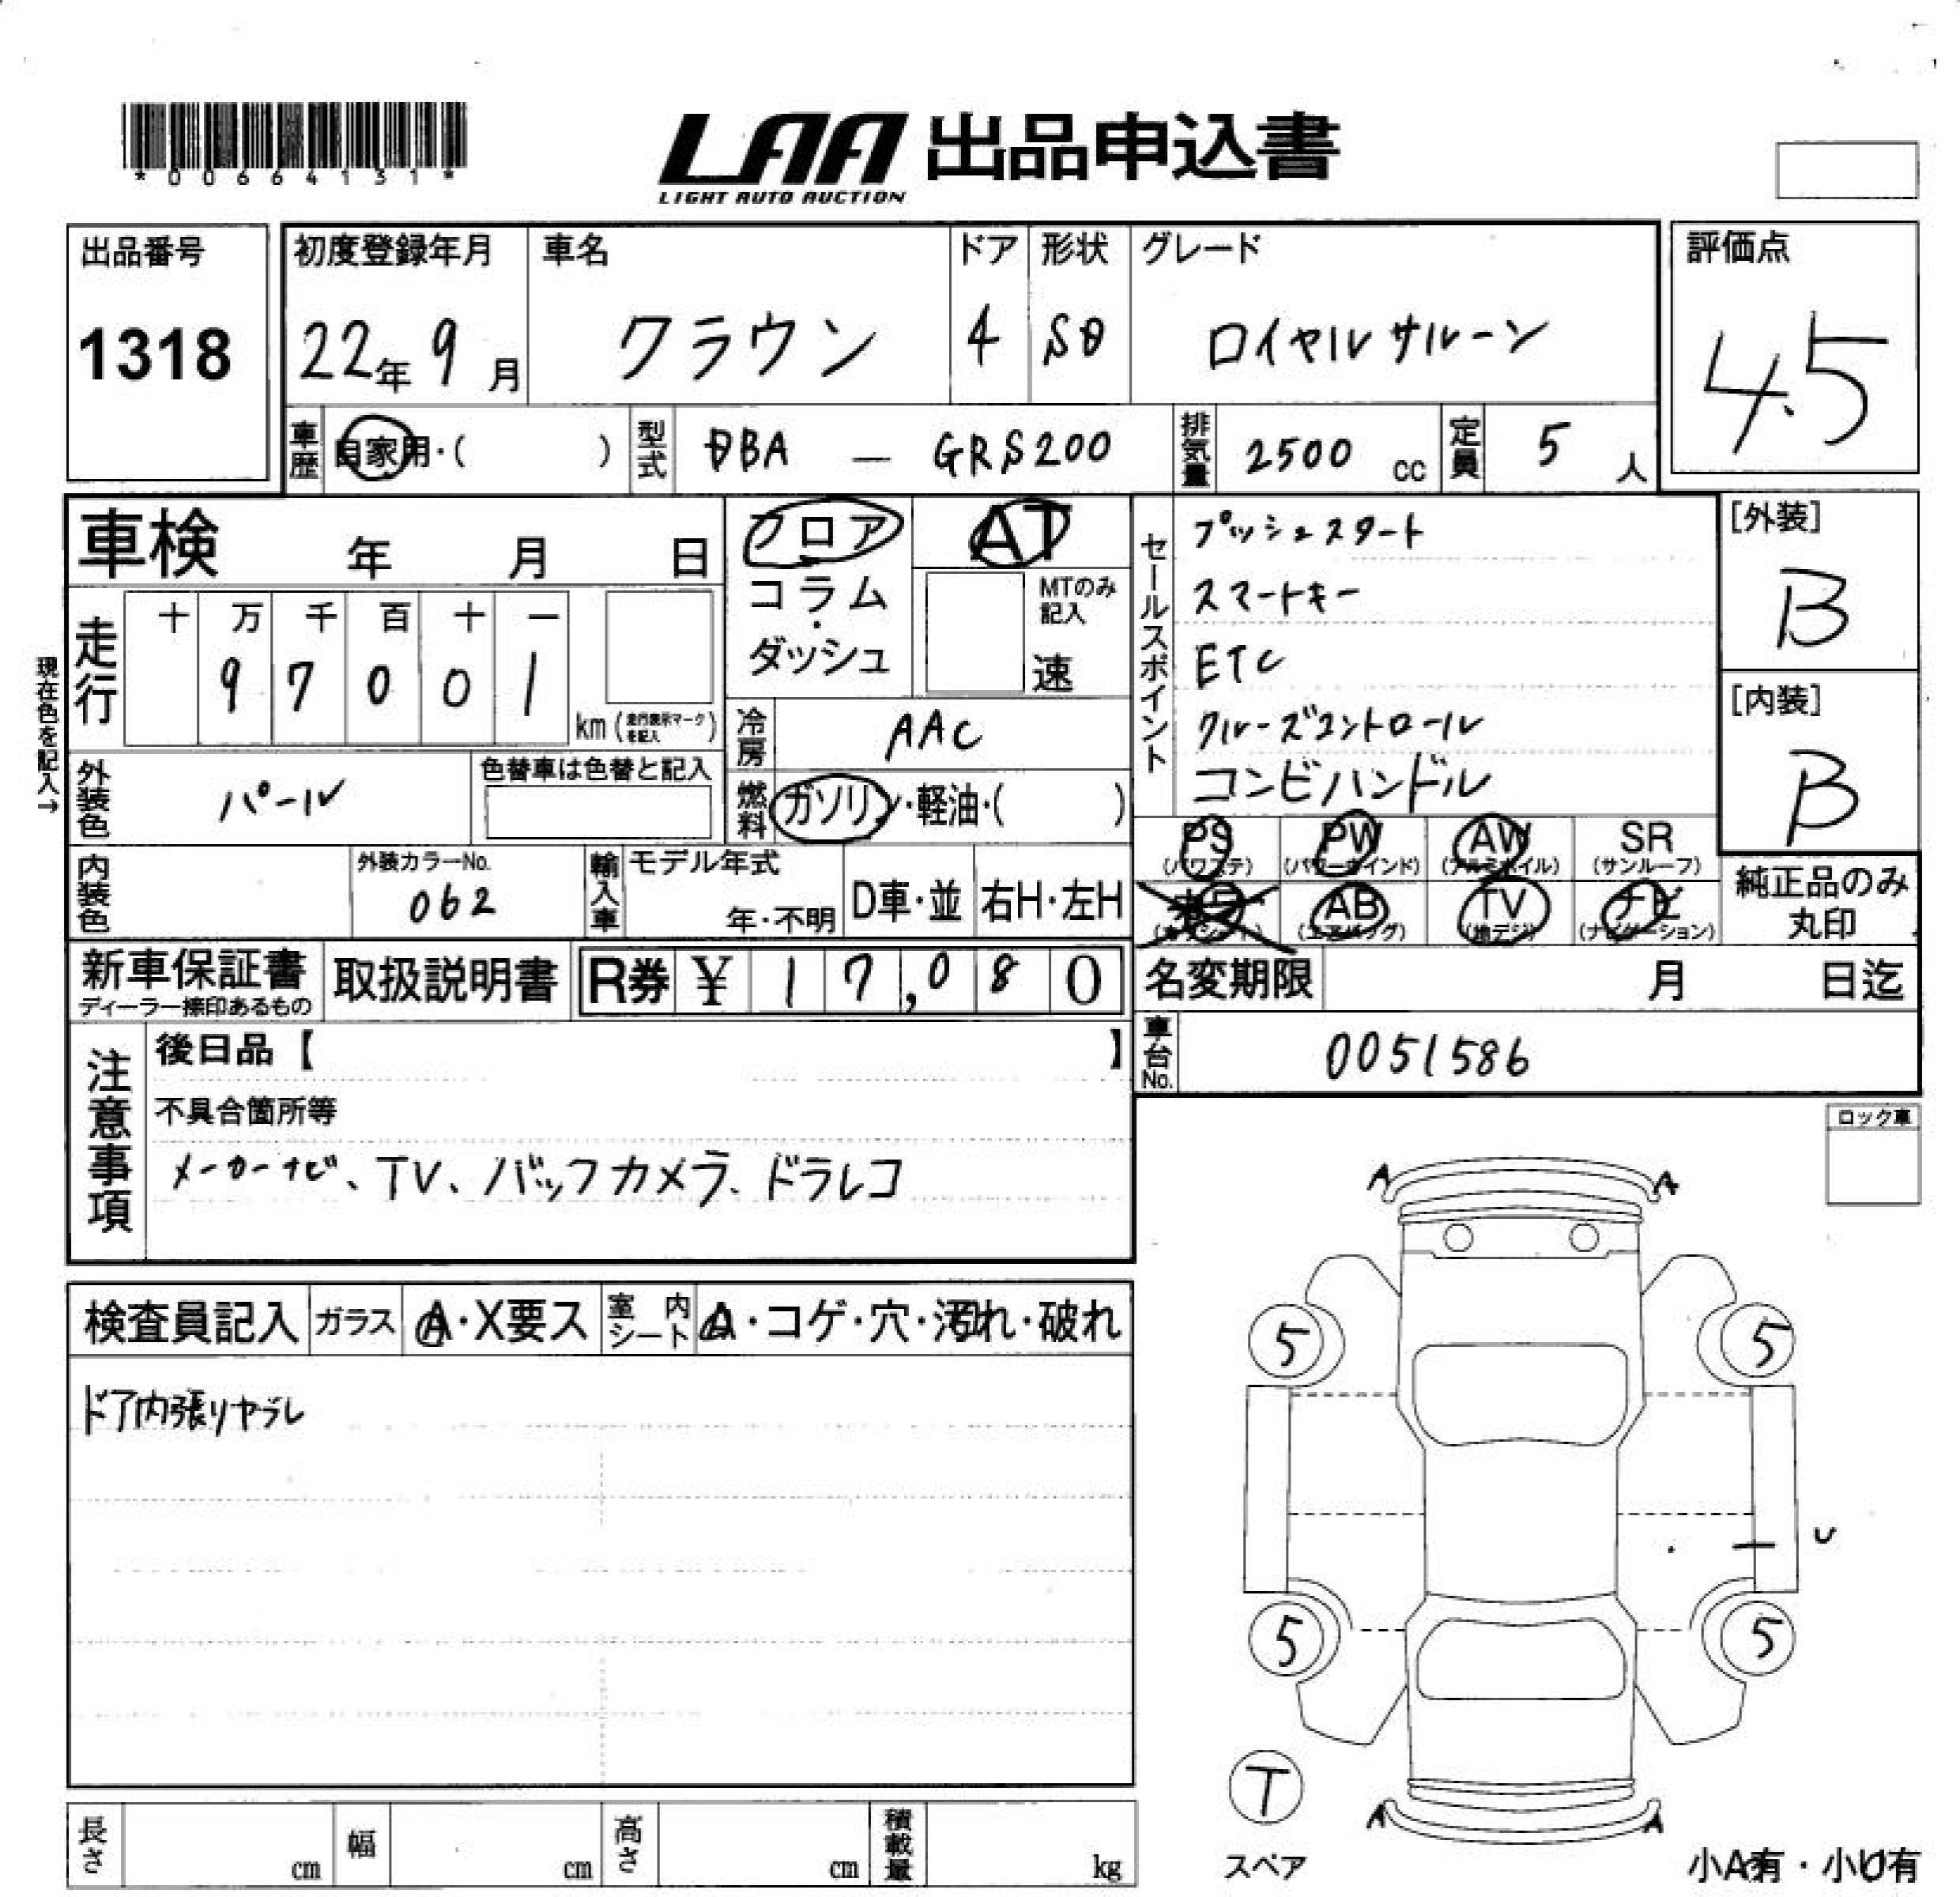 *00664131*
LAA 出品申込書
LIGHT AUTO AUCTION
出品番号
1318
初度登録年月
22年 9月
車名
クラウン
ドア
4
形状
SD
グレード
ロイヤルサルーン
評価点
4.5
車歴 自家用・( )
型式 DBA — GRS200
排気量 2500 cc
定員 5 人
車検 年 月 日
フロア
コラム・
ダッシュ
AT
MTのみ
記入
速
セールスポイント
プッシュスタート
スマートキー
ETC
クルーズコントロール
コンビハンドル
[外装]
B
[内装]
B
現在色を記入→
走行
十 万 千 百 十 一
9 7 0 0 1
km (走行表示マークを記入)
冷房 AAC
外装色 パール
色替車は色替と記入
燃料 ガソリン・軽油・( )
内装色
外装カラーNo.
062
輸入車
モデル年式
年・不明
D車・並
右H・左H
PS (パワステ)
PW (パワーウインド)
AW (アルミホイル)
SR (サンルーフ)
AB (エアバッグ)
TV (地デジ)
ナビ (ナビゲーション)
純正品のみ
丸印
新車保証書
ディーラー捺印あるもの
取扱説明書
R券 ¥ 17,080
名変期限 月 日迄
車台No. 0051586
注意事項
後日品【 】
不具合箇所等
メーカーナビ、TV、バックカメラ、ドラレコ
ロック車
検査員記入
ガラス A・X要ス
室内シート A・コゲ・穴・汚れ・破れ
ドア内張りヤブレ
A A
5 5
U
5 5
T
スペア
A A
小A有・小U有
長さ cm
幅 cm
高さ cm
積載量 kg